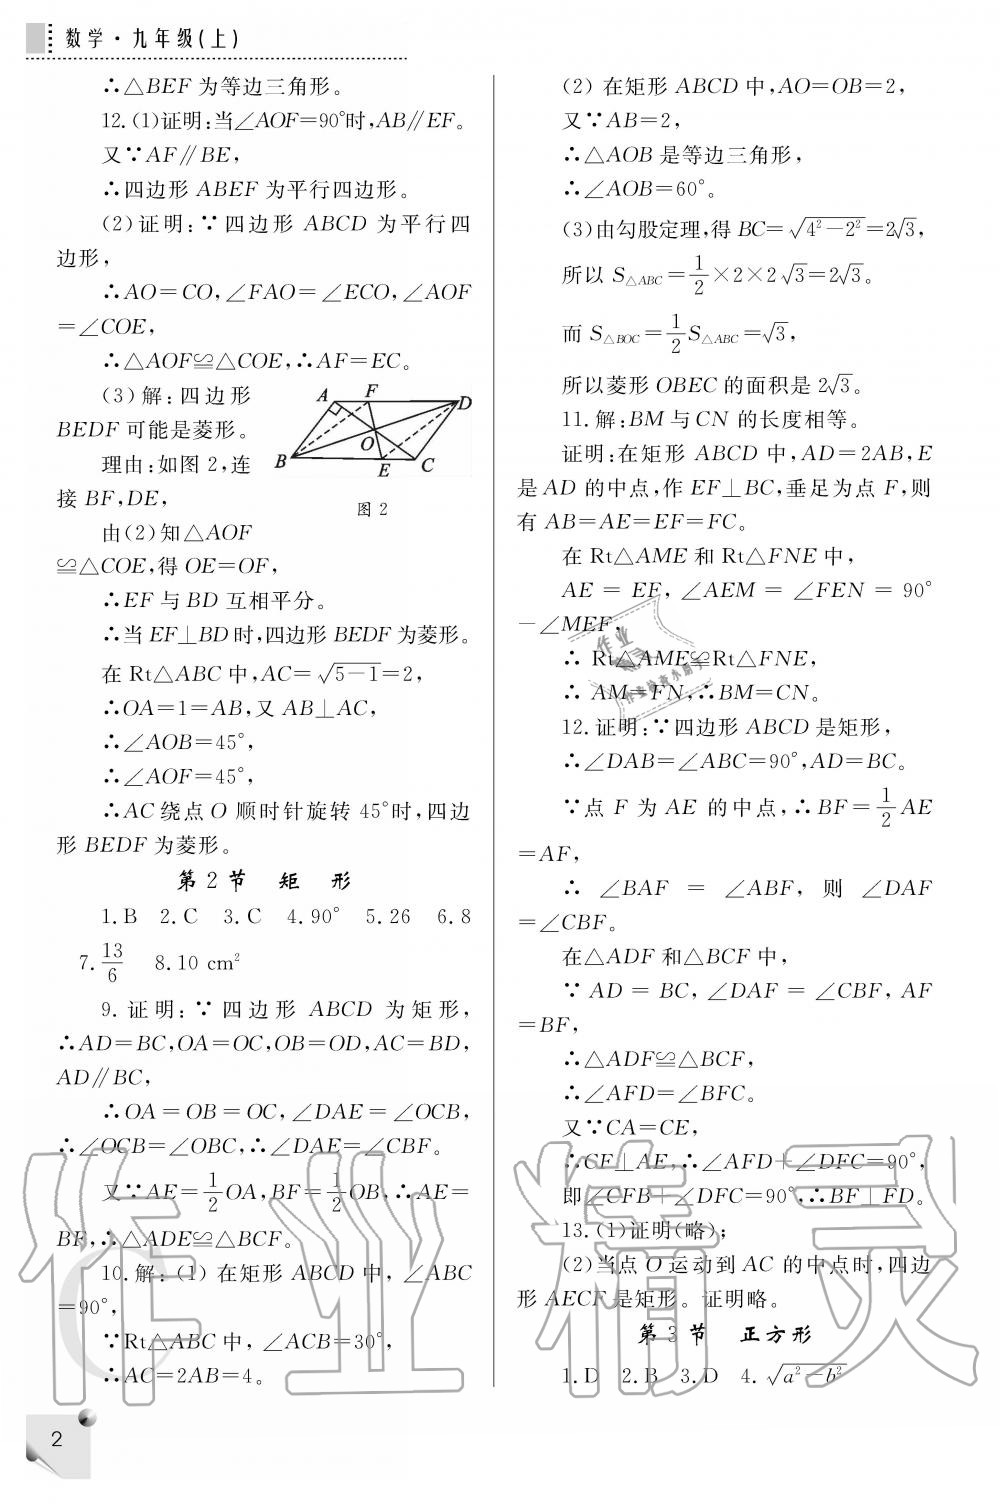 数学·九年级(上)
∴△BEF 为等边三角形。
12.(1)证明:当∠AOF=90°时,AB∥EF。
又∵AF∥BE,
∴四边形 ABEF 为平行四边形。
(2)证明:∵四边形 ABCD 为平行四
边形,
∴AO=CO,∠FAO=∠ECO,∠AOF
=∠COE,
∴△AOF≌△COE,∴AF=EC。
(3)解:四边形
BEDF 可能是菱形。
理由:如图 2,连
接 BF,DE,
A F D
O
B E C
图 2
由(2)知△AOF
≌△COE,得 OE=OF,
∴EF 与 BD 互相平分。
∴当 EF⊥BD 时,四边形 BEDF 为菱形。
在 Rt△ABC 中,AC=√(5-1)=2,
∴OA=1=AB,又 AB⊥AC,
∴∠AOB=45°,
∴∠AOF=45°,
∴AC 绕点 O 顺时针旋转 45°时,四边
形 BEDF 为菱形。
第 2 节 矩 形
1.B 2.C 3.C 4.90° 5.26 6.8
7.13/6 8.10 cm²
9.证明:∵四边形 ABCD 为矩形,
∴AD=BC,OA=OC,OB=OD,AC=BD,
AD∥BC,
∴OA=OB=OC,∠DAE=∠OCB,
∴∠OCB=∠OBC,∴∠DAE=∠CBF。
又∵AE=1/2OA,BF=1/2OB,∴AE=
BF,∴△ADE≌△BCF。
10.解:(1)在矩形 ABCD 中,∠ABC
=90°,
∵Rt△ABC 中,∠ACB=30°,
∴AC=2AB=4。
(2) 在矩形 ABCD 中,AO=OB=2,
又∵AB=2,
∴△AOB 是等边三角形,
∴∠AOB=60°。
(3)由勾股定理,得 BC=√(4²-2²)=2√3,
所以 S△ABC=1/2×2×2√3=2√3。
而 S△BOC=1/2S△ABC=√3,
所以菱形 OBEC 的面积是 2√3。
11.解:BM 与 CN 的长度相等。
证明:在矩形 ABCD 中,AD=2AB,E
是 AD 的中点,作 EF⊥BC,垂足为点 F,则
有 AB=AE=EF=FC。
在 Rt△AME 和 Rt△FNE 中,
AE=EF,∠AEM=∠FEN=90°
-∠MEF,
∴ Rt△AME≌Rt△FNE,
∴ AM=FN,∴BM=CN。
12.证明:∵四边形 ABCD 是矩形,
∴∠DAB=∠ABC=90°,AD=BC。
∵点 F 为 AE 的中点,∴BF=1/2AE
=AF,
∴ ∠BAF=∠ABF,则 ∠DAF
=∠CBF。
在△ADF 和△BCF 中,
∵ AD=BC,∠DAF=∠CBF,AF
=BF,
∴△ADF≌△BCF,
∴∠AFD=∠BFC。
又∵CA=CE,
∴CF⊥AE,∴∠AFD+∠DFC=90°,
即∠CFB+∠DFC=90°,∴BF⊥FD。
13.(1)证明(略);
(2)当点 O 运动到 AC 的中点时,四边
形 AECF 是矩形。证明略。
第 3 节 正方形
1.D 2.B 3.D 4.√(a²-b²)
2
作业精灵